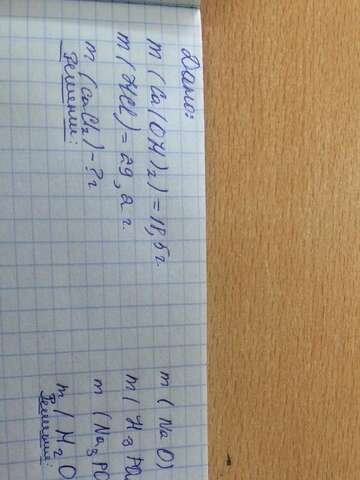 Дано:
m(Ca(OH)2) = 18,5 г
m(HCl) = 29,2 г
m(CaCl2) - ? г
Решение:
m(NaO)
m(H3PO
m(Na3PO
m(H2O
Решение: